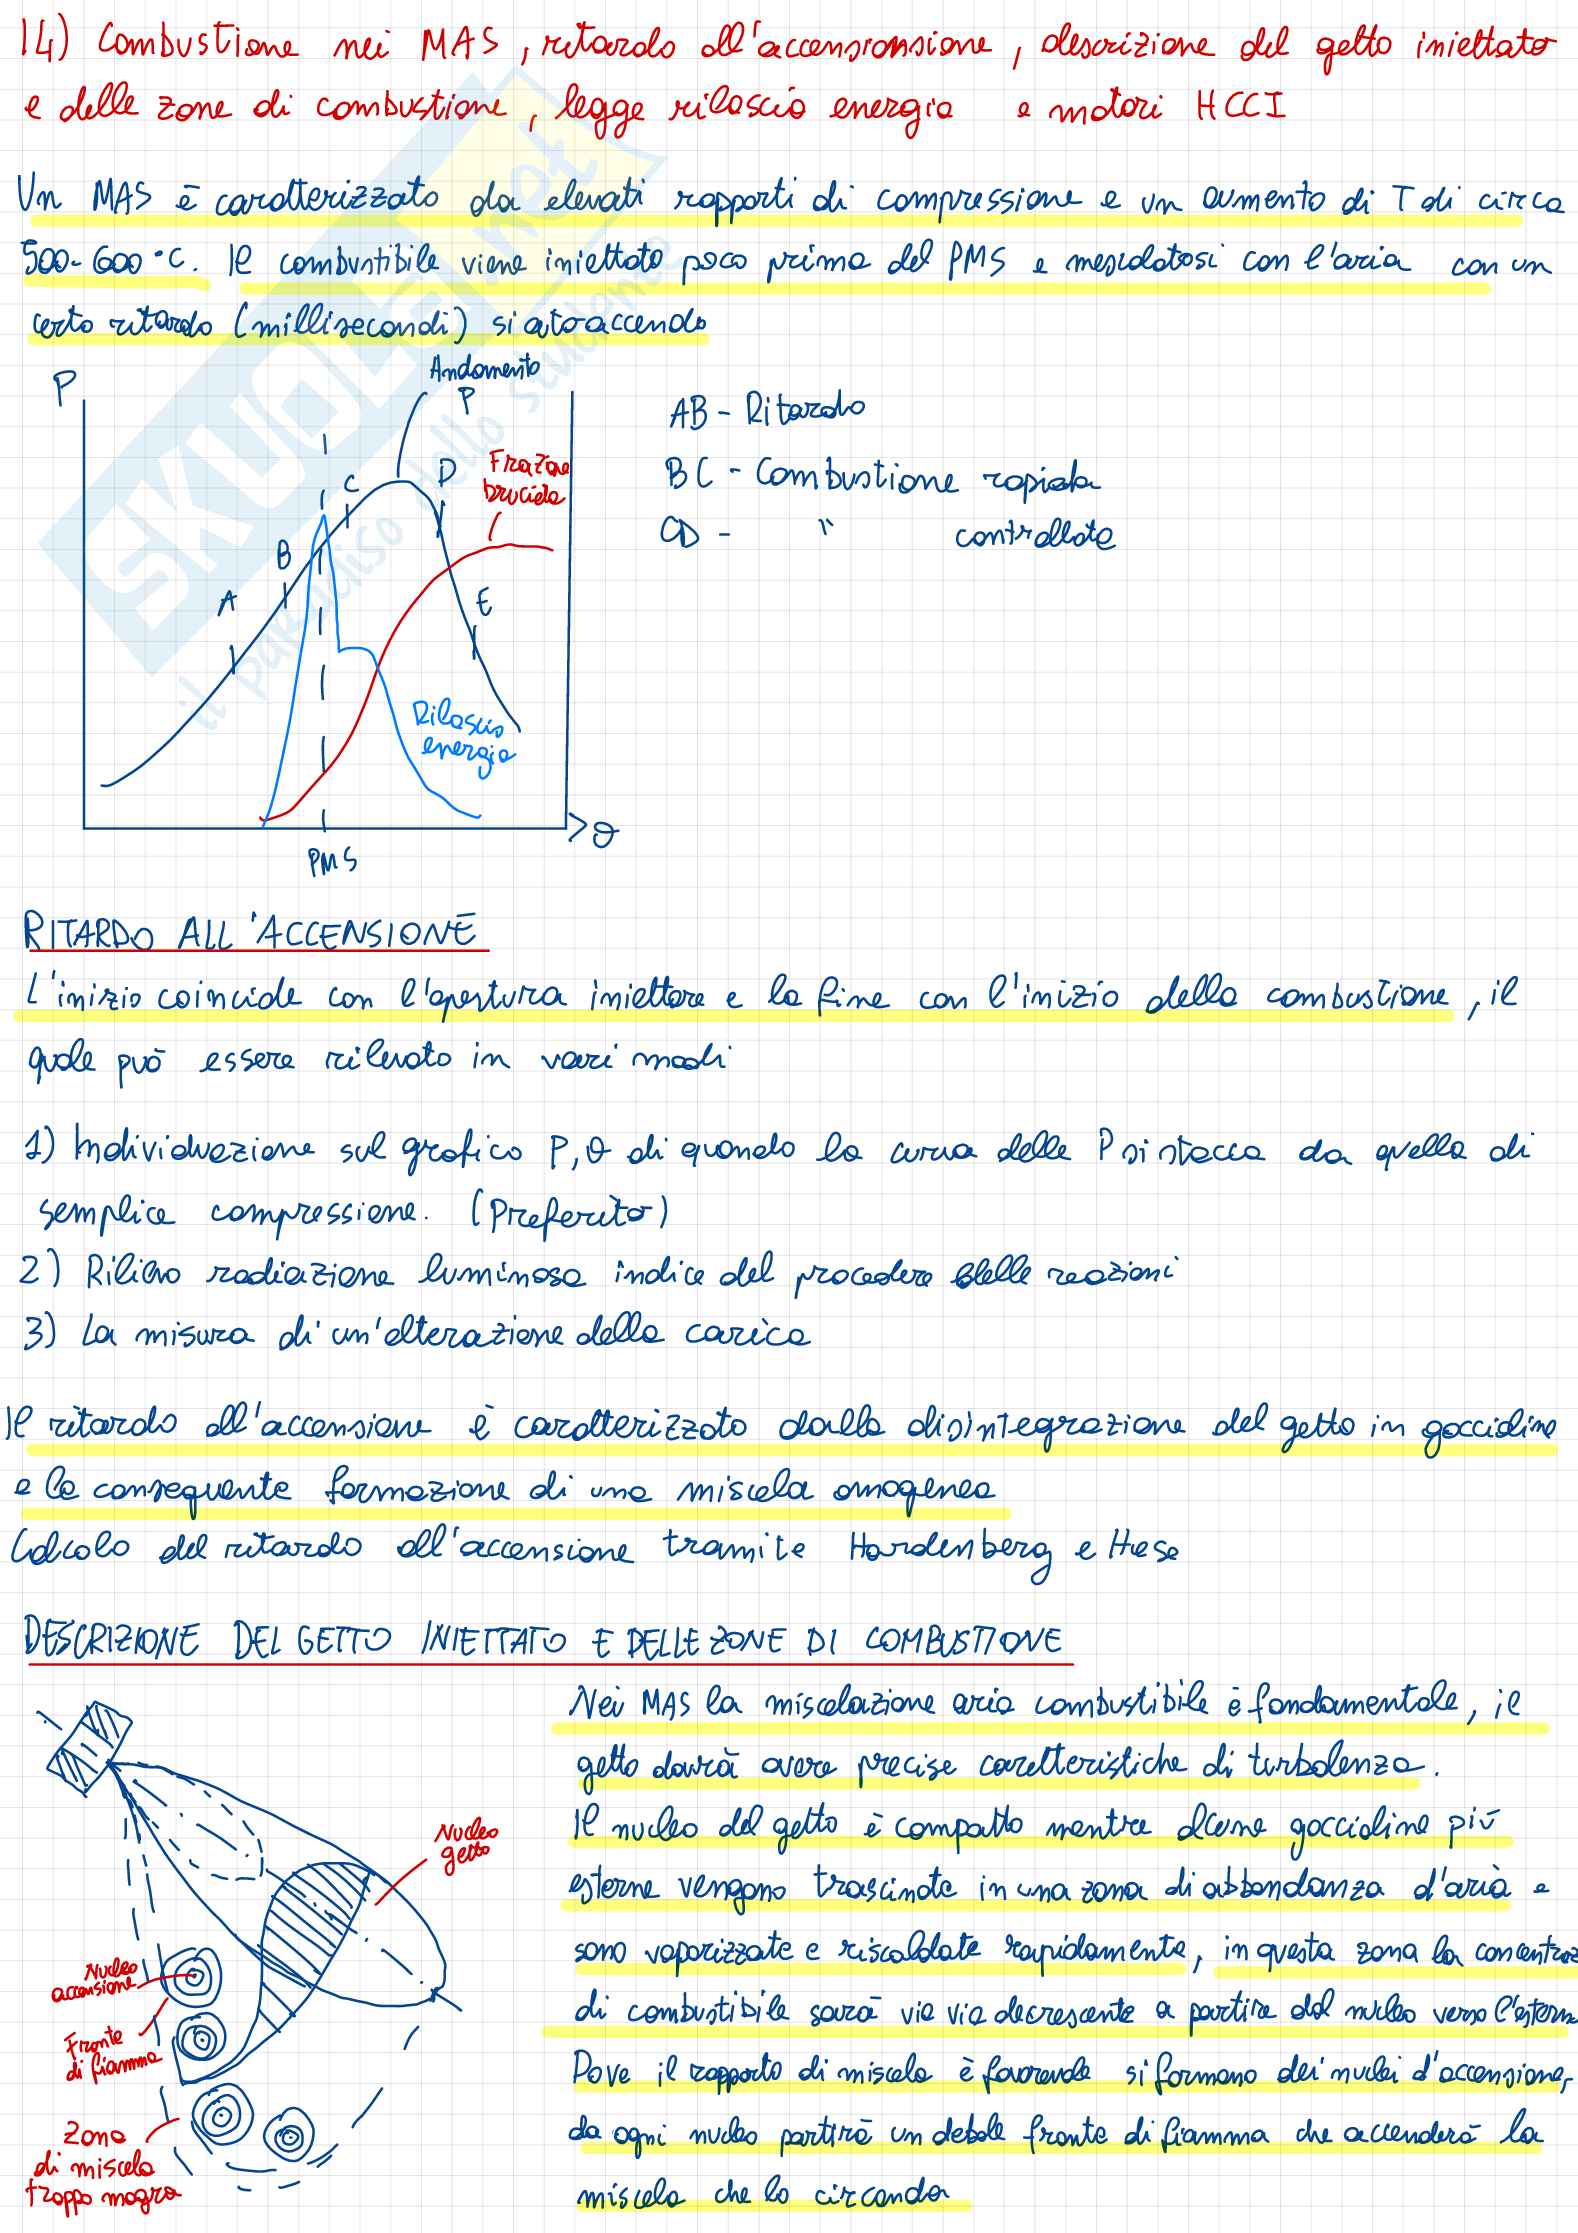 14) Combustione nei MAS, ritardo all'accensionsione, descrizione del getto iniettato
e delle zone di combustione, legge rilascio energia e motori HCCI
Un MAS è caratterizzato da elevati rapporti di compressione e un aumento di T di circa
500-600 °C. Il combustibile viene iniettato poco prima del PMS e mescolatosi con l'aria con un
certo ritardo (millisecondi) si autoaccendo
SKUOLA.net
il paradiso dello studente
P
Andamento
P
C
D
Frazione
bruciata
B
A
E
Rilascio
energia
θ
PMS
AB - Ritardo
BC - Combustione rapida
CD - " controllata
RITARDO ALL'ACCENSIONE
L'inizio coincide con l'apertura iniettore e la fine con l'inizio della combustione, il
quale può essere rilevato in vari modi
1) Individuazione sul grafico P, θ di quando la curva delle P si stacca da quella di
semplice compressione. (Preferito)
2) Rilievo radiazione luminosa indice del procedere delle reazioni
3) La misura di un'alterazione della carica
Il ritardo all'accensione è caratterizzato dalla disintegrazione del getto in goccioline
e la conseguente formazione di una miscela omogenea
Calcolo del ritardo all'accensione tramite Hardenberg e Hase
DESCRIZIONE DEL GETTO INIETTATO E DELLE ZONE DI COMBUSTIONE
Nei MAS la miscelazione aria combustibile è fondamentale, il
getto dovrà avere precise caratteristiche di turbolenza.
Il nucleo del getto è compatto mentre alcune goccioline più
esterne vengono trascinate in una zona di abbondanza d'aria e
sono vaporizzate e riscaldate rapidamente, in questa zona la concentraz
di combustibile sarà via via decrescente a partire dal nucleo verso l'estern
Dove il rapporto di miscela è favorevole si formano dei nuclei d'accensione,
da ogni nucleo partirà un debole fronte di fiamma che accenderà la
miscela che lo circonda
Nucleo
getto
Nucleo
accensione
Fronte
di fiamma
Zona
di miscela
troppo magra